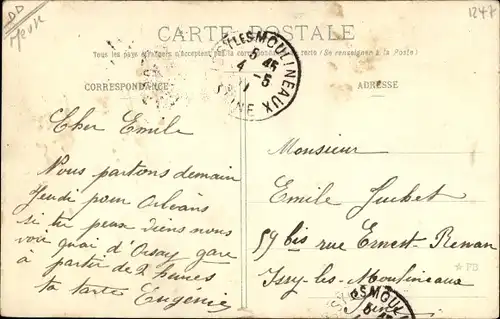 1247
CARTE POSTALE
Tous les pays étrangers n'acceptent pas la correspondance au recto (Se renseigner à la Poste)
CORRESPONDANCE
ADRESSE
MOULINEAUX
5 45
4 - 5
SEINE
Cher Emile
Nous partons demain
Jeudi pour Orléans
si tu peux viens nous
voir quai d'Orsay gare
à partir de 2 heures
ta tante Eugenie
Monsieur
Emile
59 bis rue Ernest-Renan
Issy-les-Moulineaux
Seine